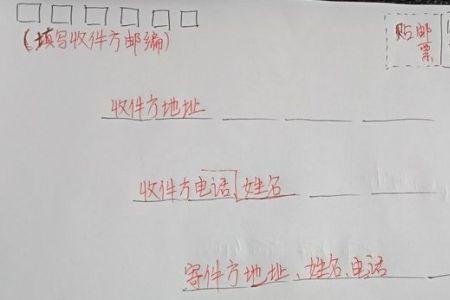 (填写收件方邮编)
贴邮
票
收件方地址
收件方电话、姓名
寄件方地址、姓名、电话